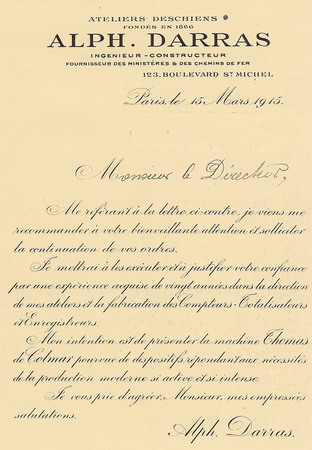 ATELIERS DESCHIENS
FONDÉS EN 1866
ALPH. DARRAS
INGENIEUR-CONSTRUCTEUR
FOURNISSEUR DES MINISTÈRES & DES CHEMINS DE FER
123, BOULEVARD ST MICHEL
Paris, le 15 Mars 1915.
Monsieur le Directeur,
Me référant à la lettre ci-contre, je viens me
recommander à votre bienveillante attention et solliciter
la continuation de vos ordres.
Je mettrai à les exécuter et à justifier votre confiance
par une expérience acquise de vingt années dans la direction
de mes ateliers et la fabrication des Compteurs-Totalisateurs
et Enregistreurs.
Mon intention est de présenter la machine Thomas
de Colmar pourvue de dispositifs répondant aux nécessités
de la production moderne si active et si intense.
Je vous prie d'agréer, Monsieur, mes empressées
salutations.
Alph. Darras.